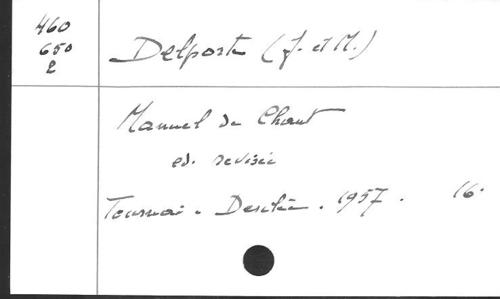 460
650
2
Delporte (J. et M.)
Manuel de Chant
ed. revisée
Tournai. Desclée. 1957. 16°